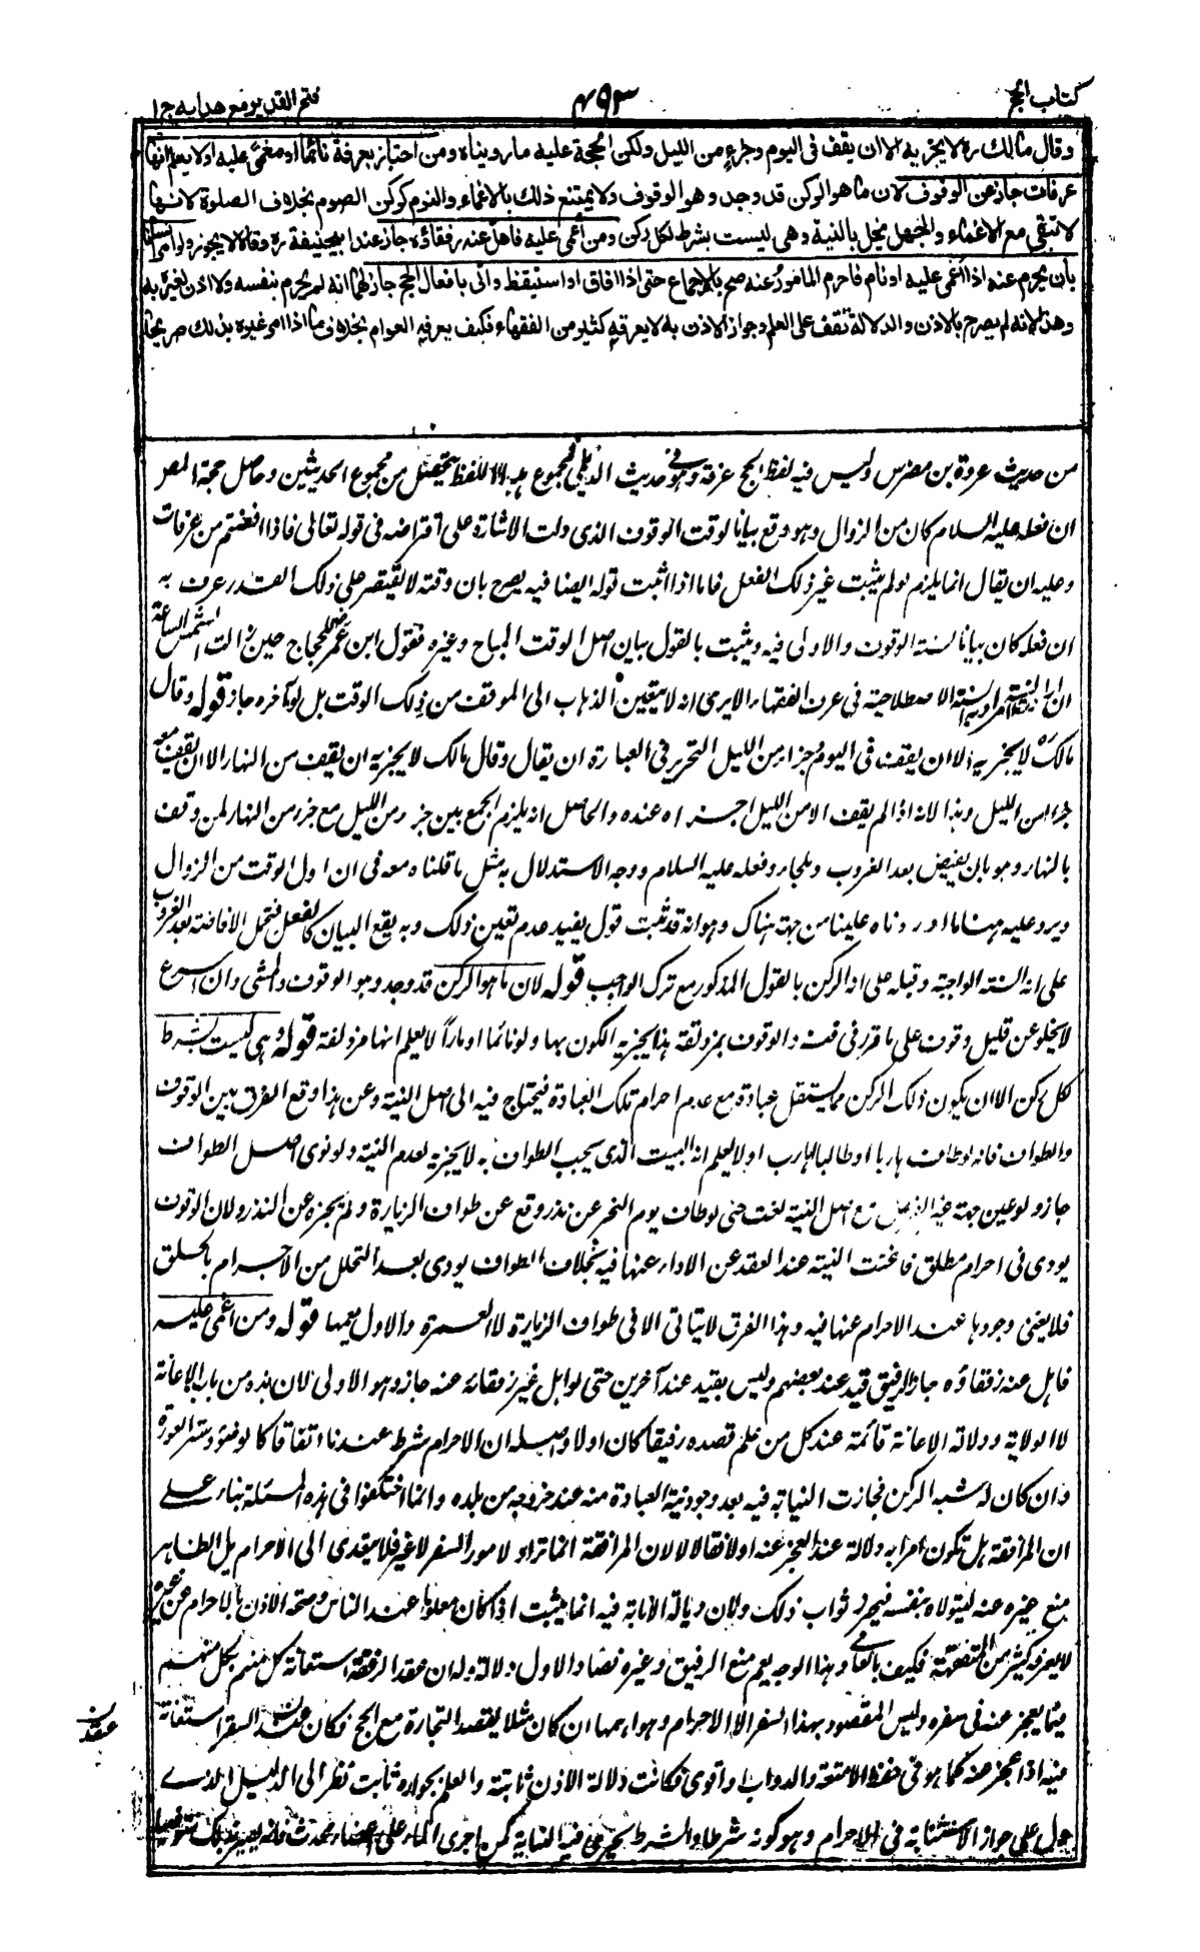 كتاب الحج
٤٩٣
فتح القدير مع هدايه ج ١
وقال مالك ره لا يجزيه الا ان يقف فى اليوم وجزء من الليل ولكن الحجة عليه ما رويناه ومن اجتاز بعرفة نائما او مغمى عليه او لا يعلم انها
عرفات جاز عن الوقوف لان ما هو الركن قد وجد وهو الوقوف ولا يمتنع ذلك بالاغماء والنوم كركن الصوم بخلاف الصلوة لانها
لا تبقى مع الاغماء والجهل يخل بالنية وهى ليست بشرط لكل ركن ومن اغمى عليه فاهل عنه رفقاؤه جاز عند ابيحنيفة ره وقالا لا يجوز ولو امر انسانا
بان يحرم عنه اذا اغمى عليه او نام فاحرم المامور عنه صح بالاجماع حتى اذا افاق او استيقظ واتى بافعال الحج جاز لهما انه لم يحرم بنفسه ولا اذن لغيره به
وهذا لانه لم يصرح بالاذن والدلالة تقف على العلم وجواز الاذن به لا يعرفه كثير من الفقهاء فكيف يعرفه العوام بخلاف ما اذا امر غيره بذلك صريحا
من حديث عروة بن مضرس وليس فيه لفظ الحج عرفة وهو فى حديث الديلى فمجموع هذا اللفظ يتحصل من مجموع الحديثين وحاصل حجة المصر
ان فعله عليه السلام كان من الزوال وهو وقع بيانا لوقت الوقوف الذى دلت الاشارة على افتراضه فى قوله تعالى فاذا افضتم من عرفات
وعليه ان يقال انما يلزم لو لم يثبت غير ذلك الفعل فاما اذا اثبت قوله ايضا فيه يصرح بان وقته لا يقتصر على ذلك القدر عرف به
ان فعله كان بيانا لسنة الوقوف والاولى فيه ويثبت بالقول بيان اصل الوقت المباح وغيره فقول ابن عمر للحجاج حين زالت الشمس الساعة
ان اردت السنة مراده السنة الاصطلاحية فى عرف الفقهاء الا يرى انه لا يتعين الذهاب الى الموقف من ذلك الوقت بل لو اخره جاز قوله وقال
مالك ره لا يجزيه الا ان يقف فى اليوم وجزء من الليل التحرير فى العبارة ان يقال وقال مالك لا يجزيه ان يقف من النهار الا ان يقف معه
جزءا من الليل وهذا لانه اذا لم يقف الا من الليل اجزاه عنده والحاصل انه يلزم الجمع بين جزء من الليل مع جزء من النهار لمن وقف
بالنهار وهو بان يفيض بعد الغروب وملجأه فعله عليه السلام ووجه الاستدلال به مثل ما قلناه معه فى ان اول الوقت من الزوال
ويرد عليه ههنا ما اوردناه علينا من جهة هناك وهو انه قد ثبت قول يفيد عدم تعين ذلك وبه يقع البيان كالفعل فتحمل الافاضة بعد الغروب
على انه السنة الواجبة وقبله على انه الركن بالقول المذكور مع ترك الواجب قوله لان ما هو الركن قد وجد وهو الوقوف والمشى وان اسرع
لا يخلو عن قليل وقوف على ما قرر فى فنه والوقوف بمزدلفة هذا يجزيه الكون بها ولو نائما او مارا لا يعلم انها مزدلفة قوله وهى ليست بشرط
لكل ركن الا ان يكون ذلك الركن مما يستقل عبادة مع عدم احرام تلك العبادة فيحتاج فيه الى اصل النية وعن هذا وقع الفرق بين الوقوف
والطواف فانه لو طاف هاربا او طالبا لهارب او لا يعلم انه البيت الذى يجب الطواف به لا يجزيه لعدم النية ولو نوى اصل الطواف
جاز ولو عين جهة غير الفرض مع اصل النية لغت حتى لو طاف يوم النحر عن نذر وقع عن طواف الزيارة ولم يجزه عن النذر ولان الوقوف
يودى فى احرام مطلق فاغنت النية عند العقد عن الاداء عنها فيه بخلاف الطواف يودى بعد التحلل من الاحرام بالحلق
فلا يغنى وجودها عند الاحرام عنها فيه وهذا الفرق لا يتاتى الا فى طواف الزيارة لا العمرة والاول يعمها قوله ومن اغمى عليه
فاهل عنه رفقاؤه جاز الرفيق قيد عند بعضهم وليس بقيد عند آخرين حتى لو اهل غير رفقائه عنه جاز وهو الاولى لان هذه من باب الاعانة
لا الولاية ودلالة الاعانة قائمة عند كل من علم قصده رفيقا كان اولا واصله ان الاحرام شرط عندنا اتفاقا كالوضوء وستر العورة
وان كان له شبه الركن فجازت النيابة فيه بعد وجود نية العبادة منه عند خروجه من بلده وانما اختلفوا فى هذه المسئلة بناء على
ان المرافقة هل تكون امرا به دلالة عند العجز عنه اولا فقالا لا لان المرافقة انما تراد لامور السفر لا غير فلا يتعدى الى الاحرام بل الظاهر
منع غيره عنه ليتولاه بنفسه فيحرز ثواب ذلك ولان دلالة الانابة فيه انما يثبت اذا كان معلوما عند الناس وصحة الاذن بالاحرام عن غيره
لا يعرفه كثير من المتفقهة فكيف بالعامى وهذا الوجه يعم منع الرفيق وغيره نصا والاول دلالة وله ان عقد الرفقة استعانة كل منهم بكل منهم
فيما يعجز عنه فى سفره وليس المقصود بهذا السفر الا الاحرام وهو اهمها ان كان مثلا يقصد التجارة مع الحج فكان عقد السفر استعانة
عقدن
فيه اذا عجز عنه كما هو فى حفظ الامتعة والدواب او اقوى فكانت دلالة الاذن ثابتة والعلم بجوازه ثابت نظرا الى الدليل الذى
دل على جواز الاستنابة فى الاحرام وهو كونه شرطا والشرط يجزى فيه النيابة كمن اجرى الماء على اعضاء محدث فانه يصير بذلك متوضيا